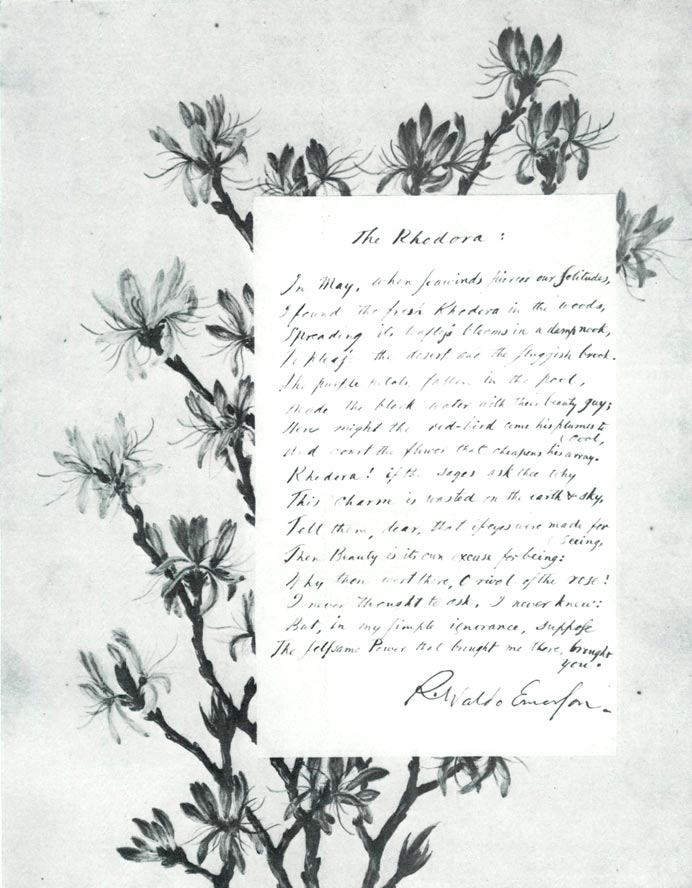 The Rhodora:
In May, when seawinds pierced our solitudes,
I found the fresh Rhodora in the woods,
Spreading its leafless blooms in a damp nook,
To please the desert and the sluggish brook.
The purple petals fallen in the pool,
Made the black water with their beauty gay;
Here might the red-bird come his plumes to
cool,
And court the flower that cheapens his array.
Rhodora! if the sages ask thee why
This charm is wasted on the earth & sky,
Tell them, dear, that if eyes were made for
seeing,
Then Beauty is its own excuse for being:
Why thou wert there, O rival of the rose!
I never thought to ask, I never knew:
But, in my simple ignorance, suppose
The selfsame Power that brought me there, brought
you.
R. Waldo Emerson.